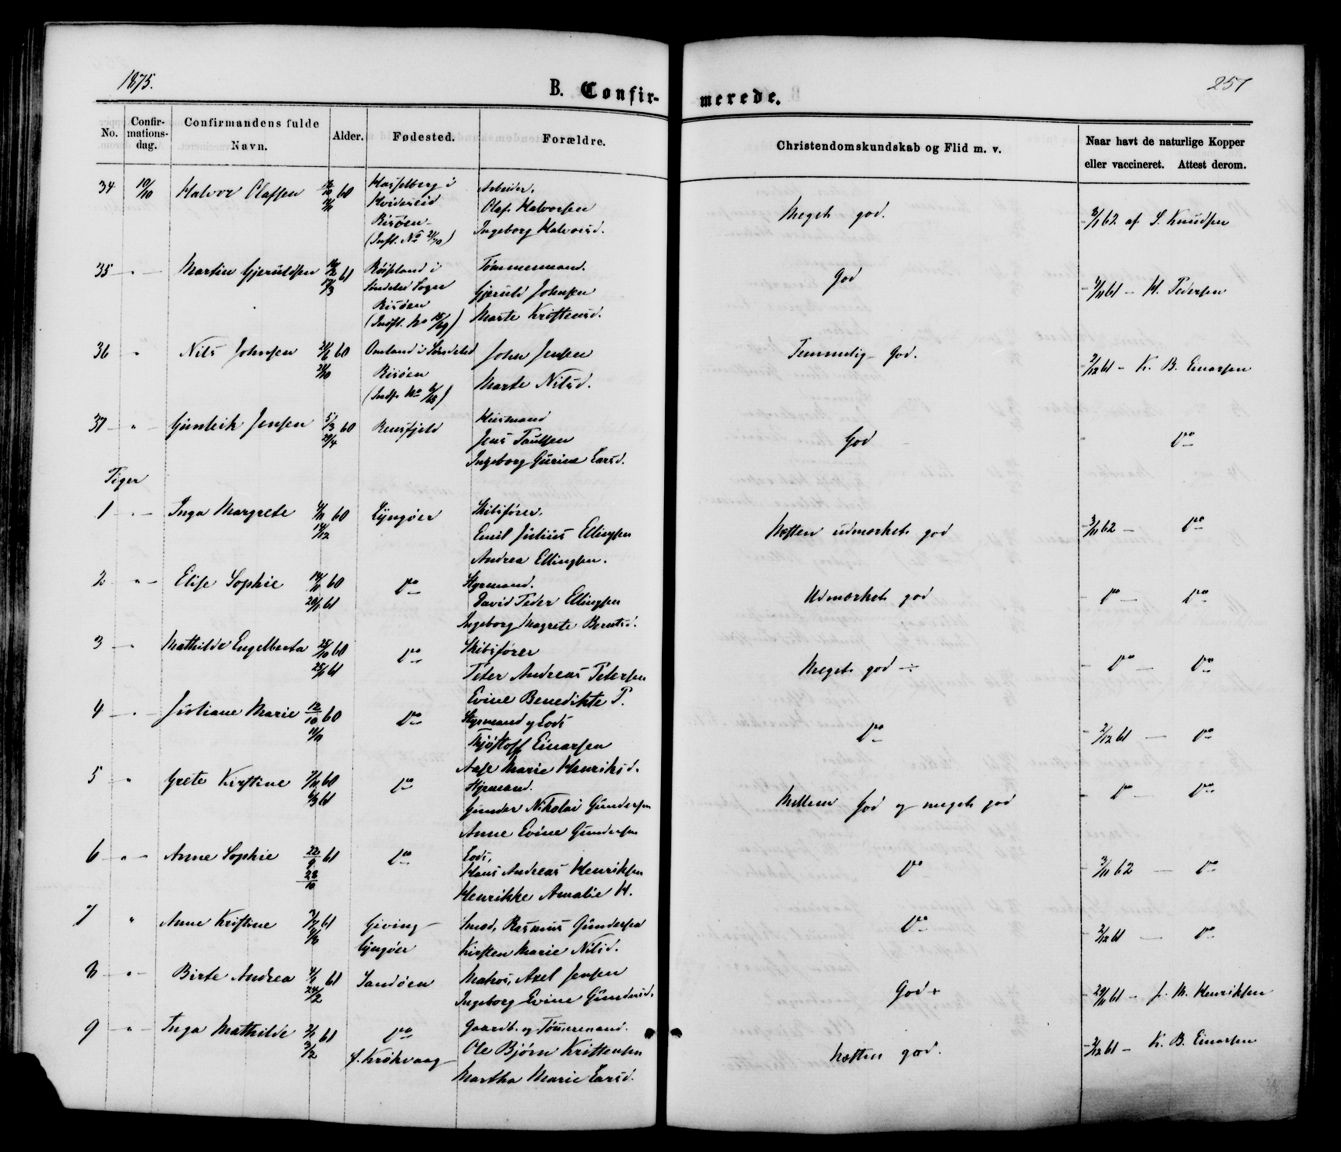 1875.
B. Confir-
merede.
257
No.
Confir-
mations-
dag.
Confirmandens fulde
Navn.
Alder.
Fødested.
Forældre.
Christendomskundskab og Flid m. v.
Naar havt de naturlige Kopper
eller vaccineret. Attest derom.
34 10/10 Halvor Olafsen 60
Hasselberg i
Hvideseid
Risøen
Arbeider.
Olaf Halvorsen
Ingeborg Halvorsd.
Meget god.
62 af S. Knudsen
35 — " — Martin Gjeruldsen 61
Røisland i
Søndeled Sogn
Risøen
Tømmermand.
Gjeruld Johnsen
Marte Kristensd.
God
61 — H. Pedersen
36 " Nils Johnsen 60
Omland i Søndeled
Risøen
John Jensen
Marte Nilsd.
Temmelig God.
2/12 61 — K. B. Einarsen
37 — " — Gunleik Jensen 60
Rensfjeld
Huusmand
Jens Taulsen
Ingeborg Gurine Larsd.
God
Do
Piger
1 — " — Inga Margrete 60
Lyngøer
Skibsfører.
Emil Julius Ellingsen
Andrea Ellingsen.
Næsten udmærket god
62 — Do
2 " — Elise Sophie 60
61
Do
Styrmand.
David Peder Ellingsen
Ingeborg Magrete Berntsd.
Udmærket god
Do — Do
3 " Mathilde Engelberta 60
61
Do
Skibsfører
Peter Andreas Petersen
Evine Benedikte P.
Meget god
Do — Do
4 — " — Justiane Marie 60
Do
Styrmand og Lods
Einarsen
Aase Marie Henriksd.
Do
2/12 61 — Do
5 " Grete Kirstine 60
61
Do
Styrmand.
Gunder Nikolai Gundersen
Anne Evine Gundersen
Mellem God og meget god
Do — Do
6 " — Anne Sophie 22/9 61
28/10
Do
Lods,
Hans Andreas Henriksen
Henrikke Amalie H.
Do
62 — Do
7 " Anne Kristine 61
Giving —
Lyngøer
Smed, Rasmus Gundersen
Kirsten Marie Nilsd.
Do
2/12 61 — Do
8 — " — Birte Andrea 61
Sandøen
Matros, Axel Jensen
Ingeborg Evine Gundersd.
God
61 — J. M. Henriksen
9 " — Inga Mathilde 61
Do
f. Krokvaag
Gaardb. og Tømmermand.
Ole Bjørn Kristensen
Martha Marie Larsd.
Næsten god.
61 — K. B. Einarsen